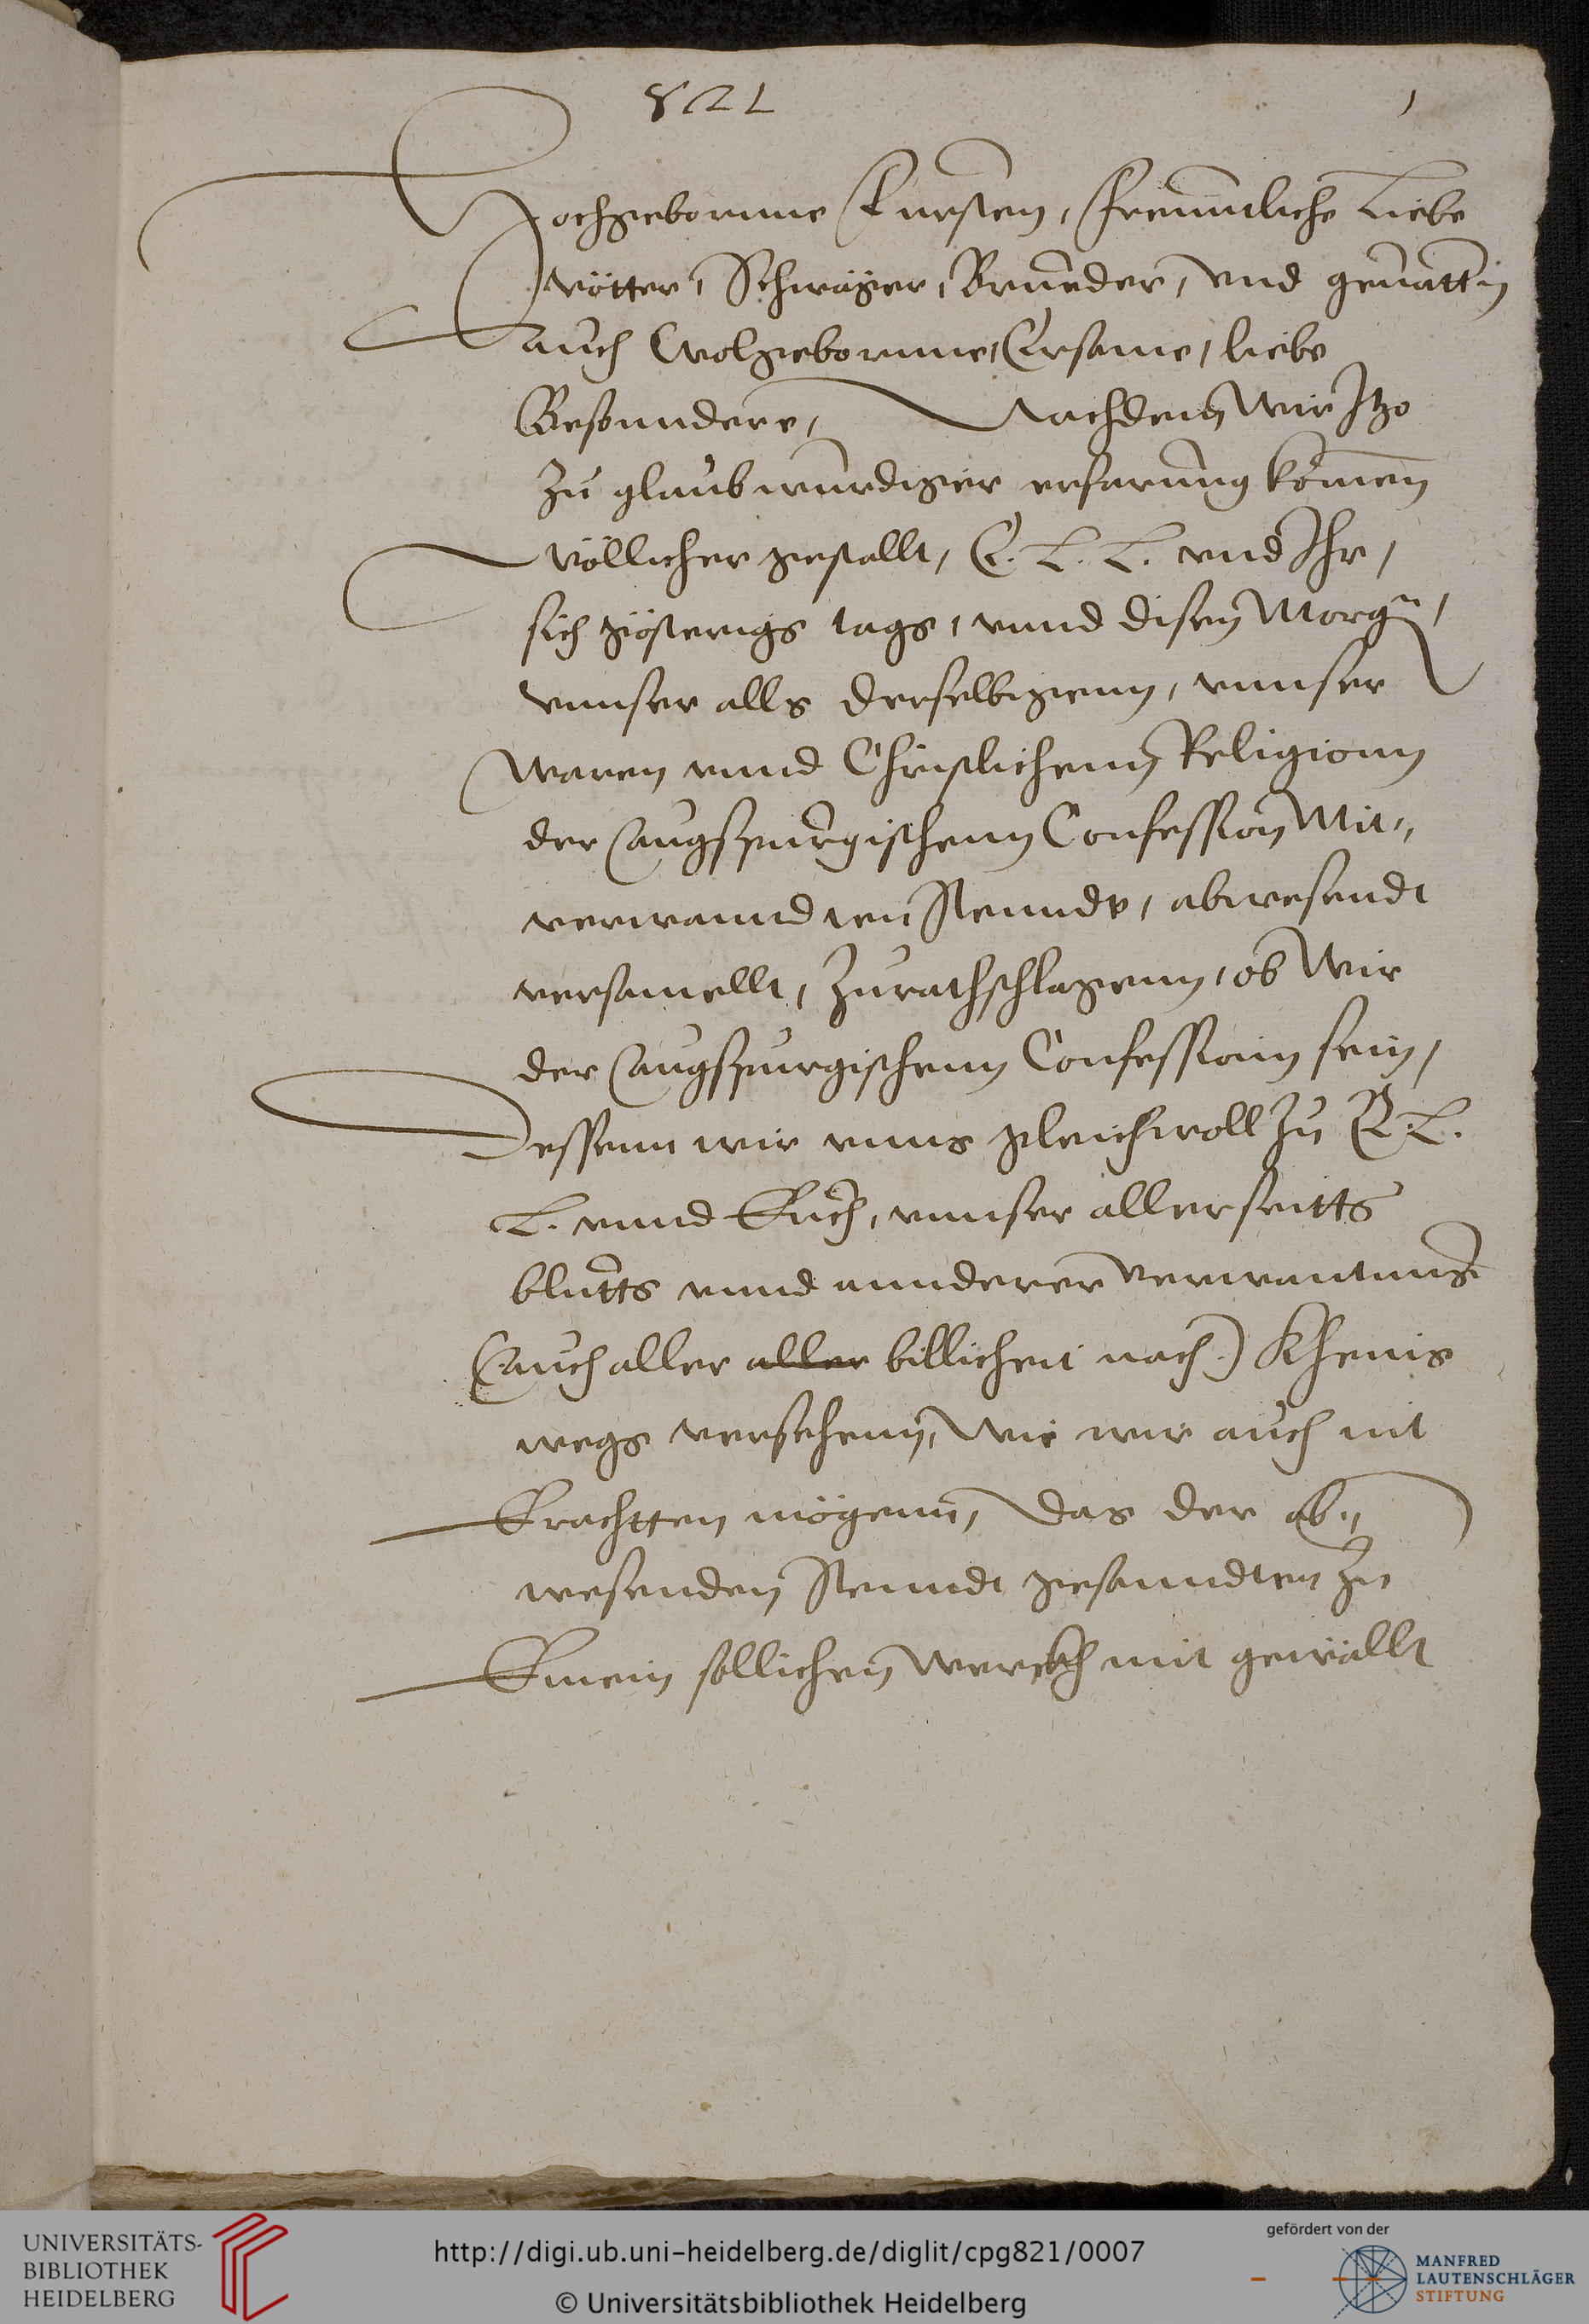 821
1
Hochgebornne Fursten, Freuntliche Liebe
Vötter, Schwäger, Brueder, vnd geuattern
auch Wolgebornne, Ersame, liebe
Besonndere, Nachdem Wir Itzo
zu glaubwurdiger erfarung komen
wöllicher gestallt, E. L. L. vnd Ihr,
sich gösterigs tags, vnnd disen Morgn,
vnnser alls derselbigenn, vnnser
waren vnnd Christlichenn Religionn
der Augspurgischenn Confession Mit„
verwanndten Stenndt, abwesendt
versamellt, Zurathschlagenn, ob Wir
der Augspurgischenn Confession sein,
Dessenn wir vnns gleichwoll zu E. L.
L. vnnd Euch, vnnser allerseitts
blutts vnnd annderer verwantnus
(auch aller aller billicheit nach) Kheins
wegs versehenn, Wie wir auch nit
Erachtten mögenn, das der ab„
wesenden Stenndt gesanndten zu
Einem sollichen werckh mit gewällt
UNIVERSITÄTS-
BIBLIOTHEK
HEIDELBERG
http://digi.ub.uni-heidelberg.de/diglit/cpg821/0007
© Universitätsbibliothek Heidelberg
gefördert von der
MANFRED
LAUTENSCHLÄGER
STIFTUNG